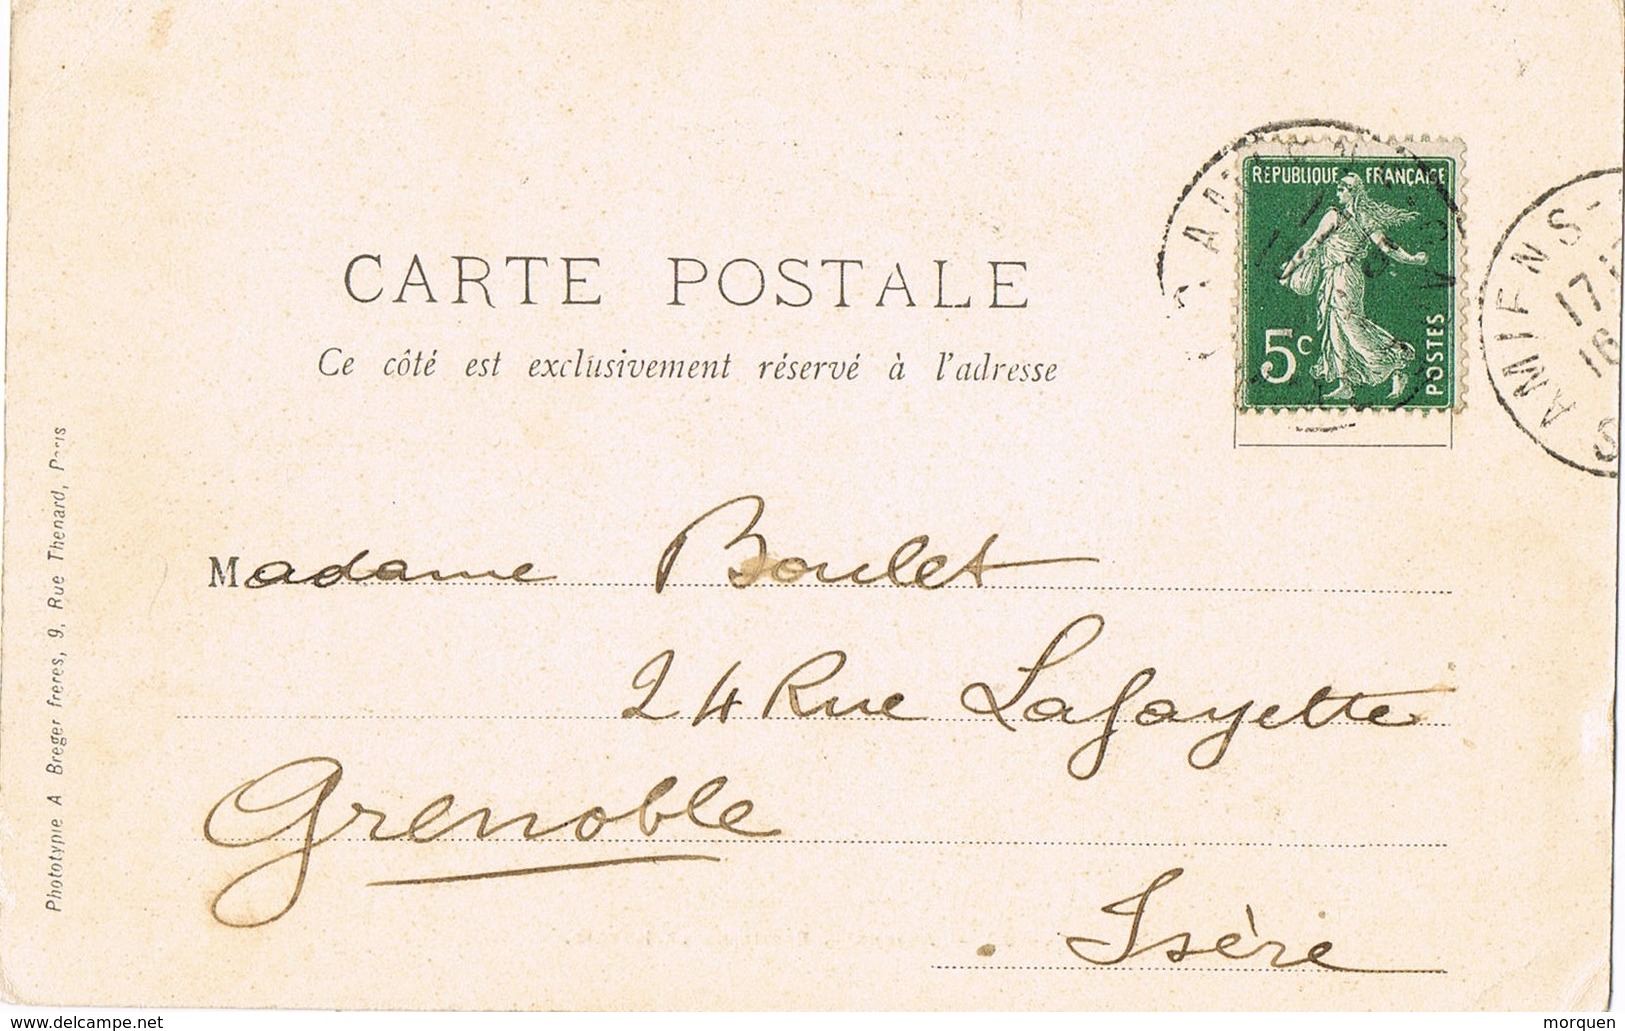 REPUBLIQUE FRANÇAISE
5c
POSTES
AMIENS
17
16
CARTE POSTALE
Ce côté est exclusivement réservé à l'adresse
Madame Boulet
24 Rue Lafayette
Grenoble
Isère
Phototypie A Breger frères, 9, Rue Thenard, Paris
www.delcampe.net
morquen